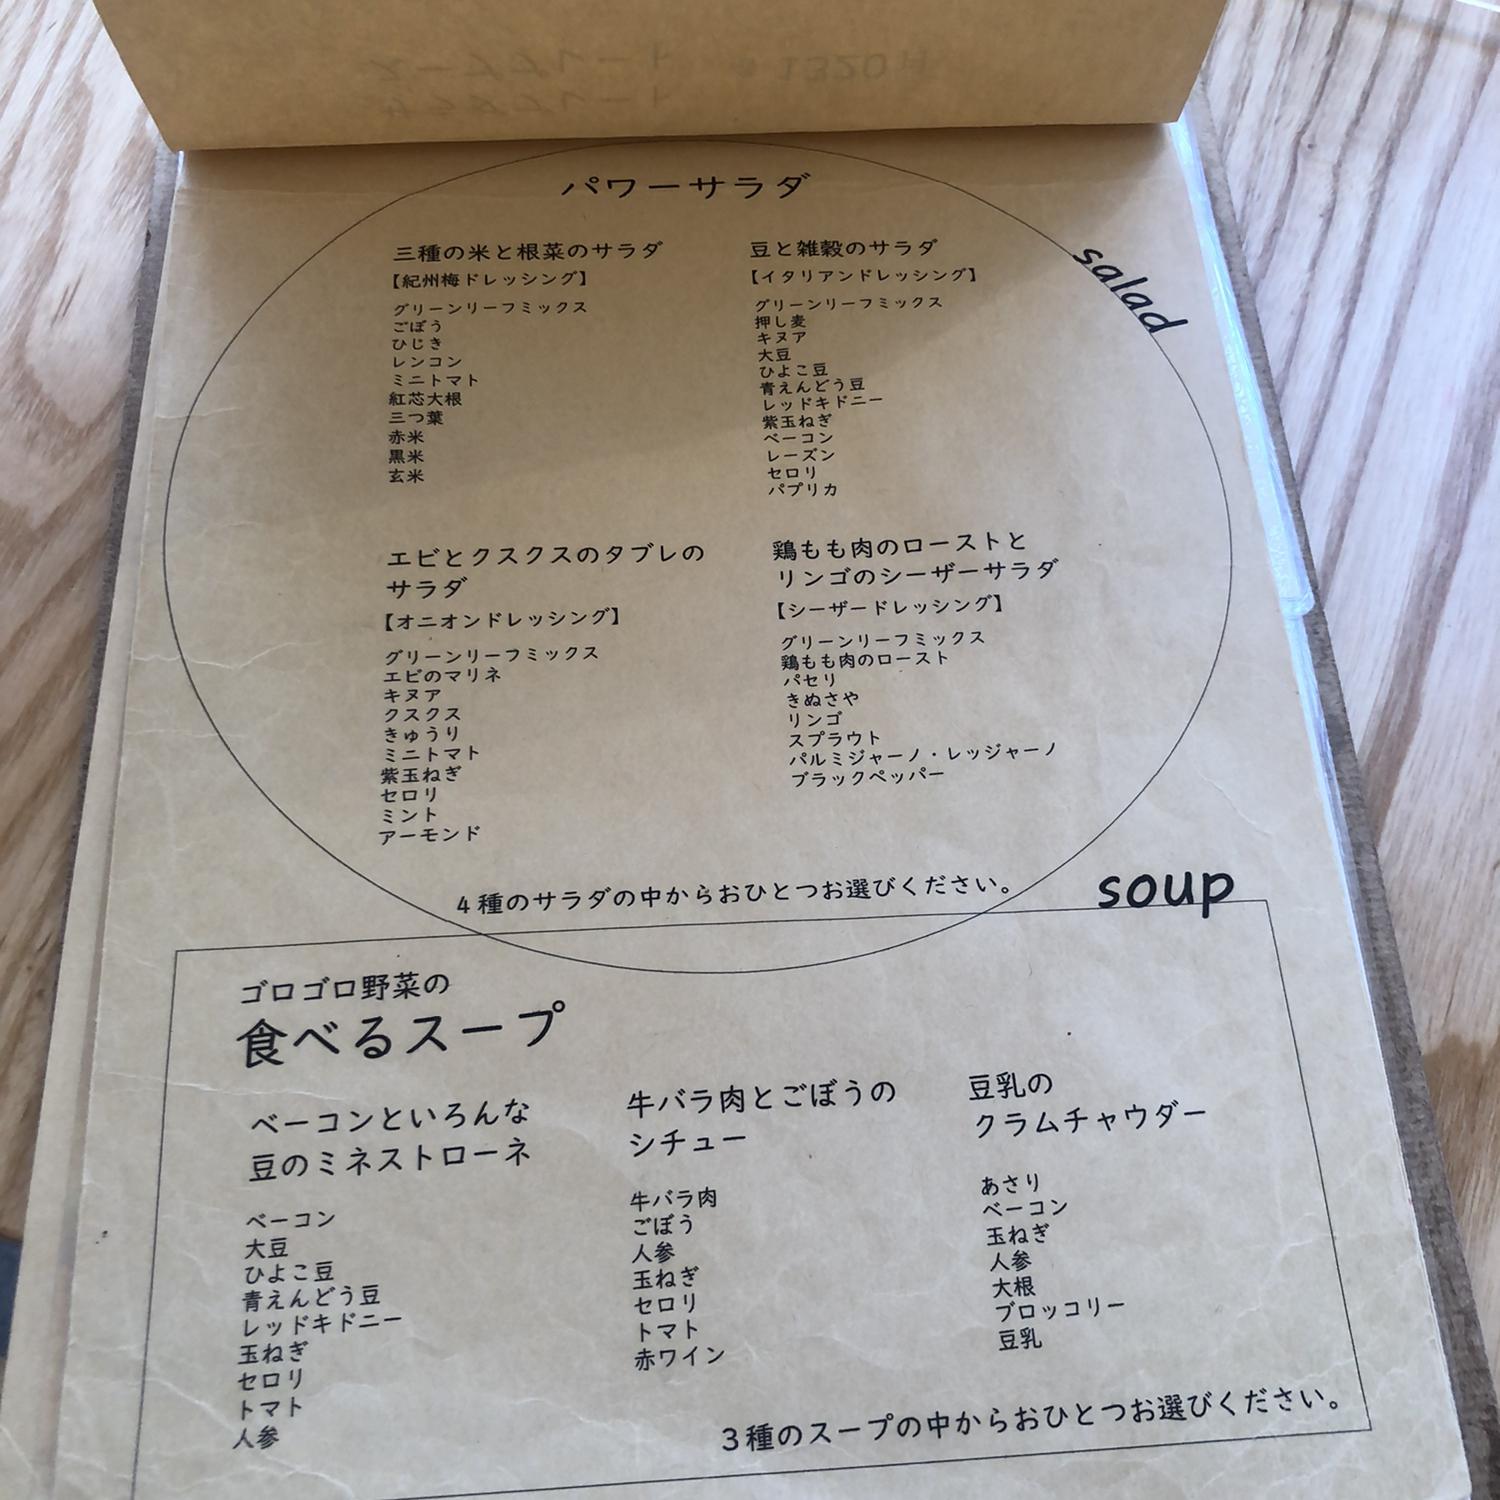 パワーサラダ
salad
三種の米と根菜のサラダ
【紀州梅ドレッシング】
グリーンリーフミックス
ごぼう
ひじき
レンコン
ミニトマト
紅芯大根
三つ葉
赤米
黒米
玄米
豆と雑穀のサラダ
【イタリアンドレッシング】
グリーンリーフミックス
押し麦
キヌア
大豆
ひよこ豆
青えんどう豆
レッドキドニー
紫玉ねぎ
ベーコン
レーズン
セロリ
パプリカ
エビとクスクスのタブレの
サラダ
【オニオンドレッシング】
グリーンリーフミックス
エビのマリネ
キヌア
クスクス
きゅうり
ミニトマト
紫玉ねぎ
セロリ
ミント
アーモンド
鶏もも肉のローストと
リンゴのシーザーサラダ
【シーザードレッシング】
グリーンリーフミックス
鶏もも肉のロースト
パセリ
きぬさや
リンゴ
スプラウト
パルミジャーノ・レッジャーノ
ブラックペッパー
4種のサラダの中からおひとつお選びください。
soup
ゴロゴロ野菜の
食べるスープ
ベーコンといろんな
豆のミネストローネ
ベーコン
大豆
ひよこ豆
青えんどう豆
レッドキドニー
玉ねぎ
セロリ
トマト
人参
牛バラ肉とごぼうの
シチュー
牛バラ肉
ごぼう
人参
玉ねぎ
セロリ
トマト
赤ワイン
豆乳の
クラムチャウダー
あさり
ベーコン
玉ねぎ
人参
大根
ブロッコリー
豆乳
3種のスープの中からおひとつお選びください。